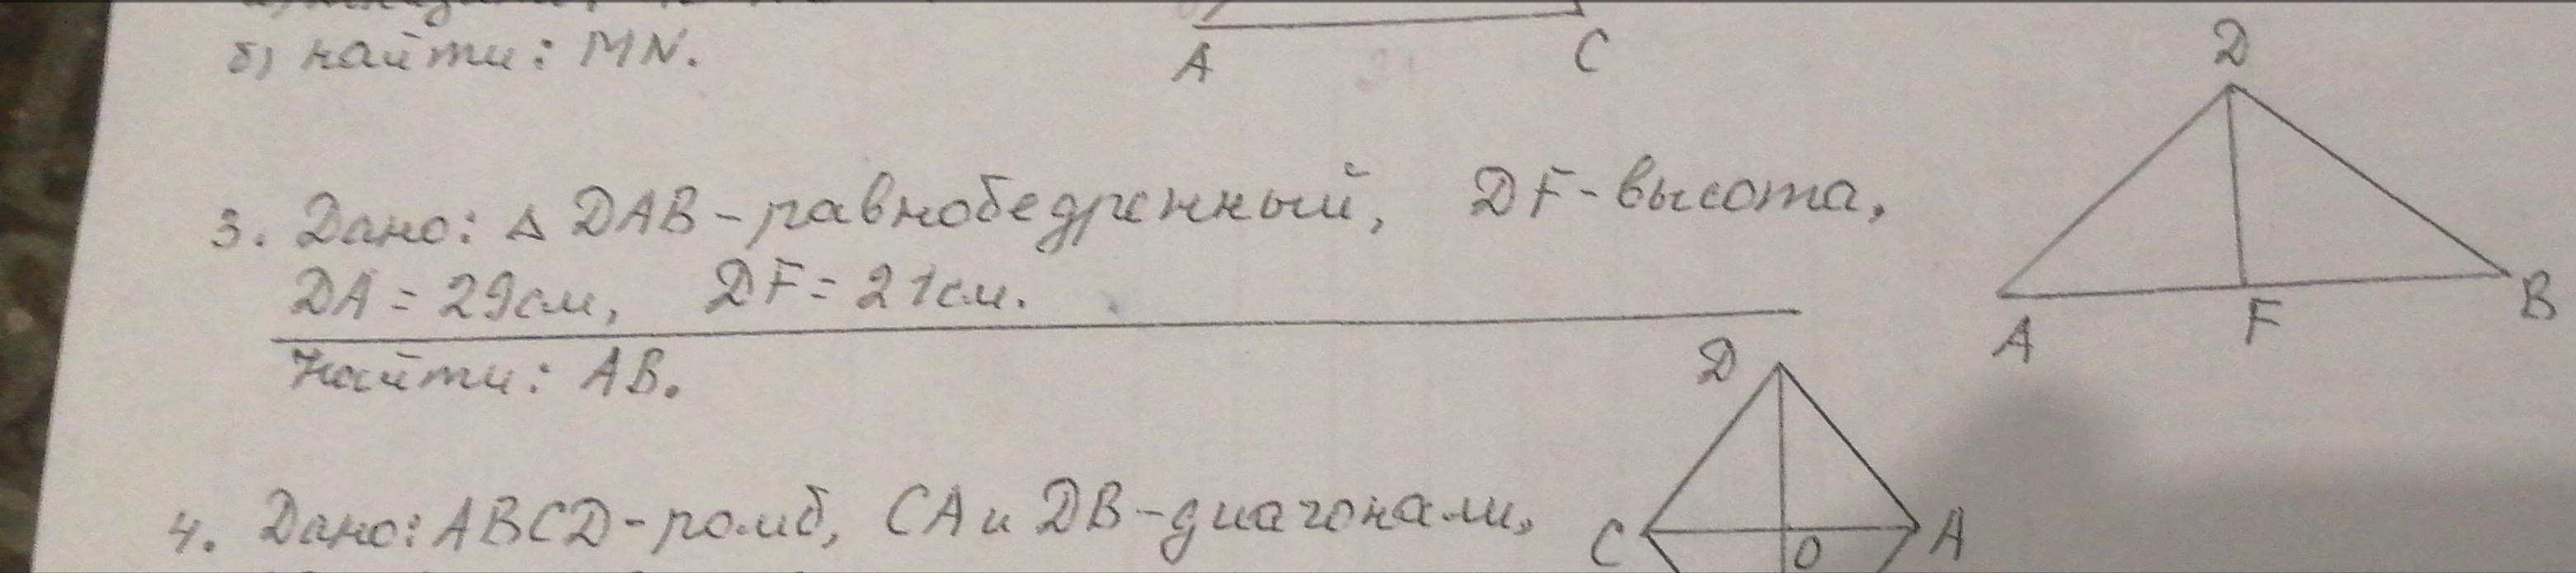 б) найти: MN.
A C
D
3. Дано: △ DAB - равнобедренный, DF - высота,
DA = 29см, DF = 21см.
A F B
Найти: AB.
D
4. Дано: ABCD - ромб, CA и DB - диагонали,
C O A